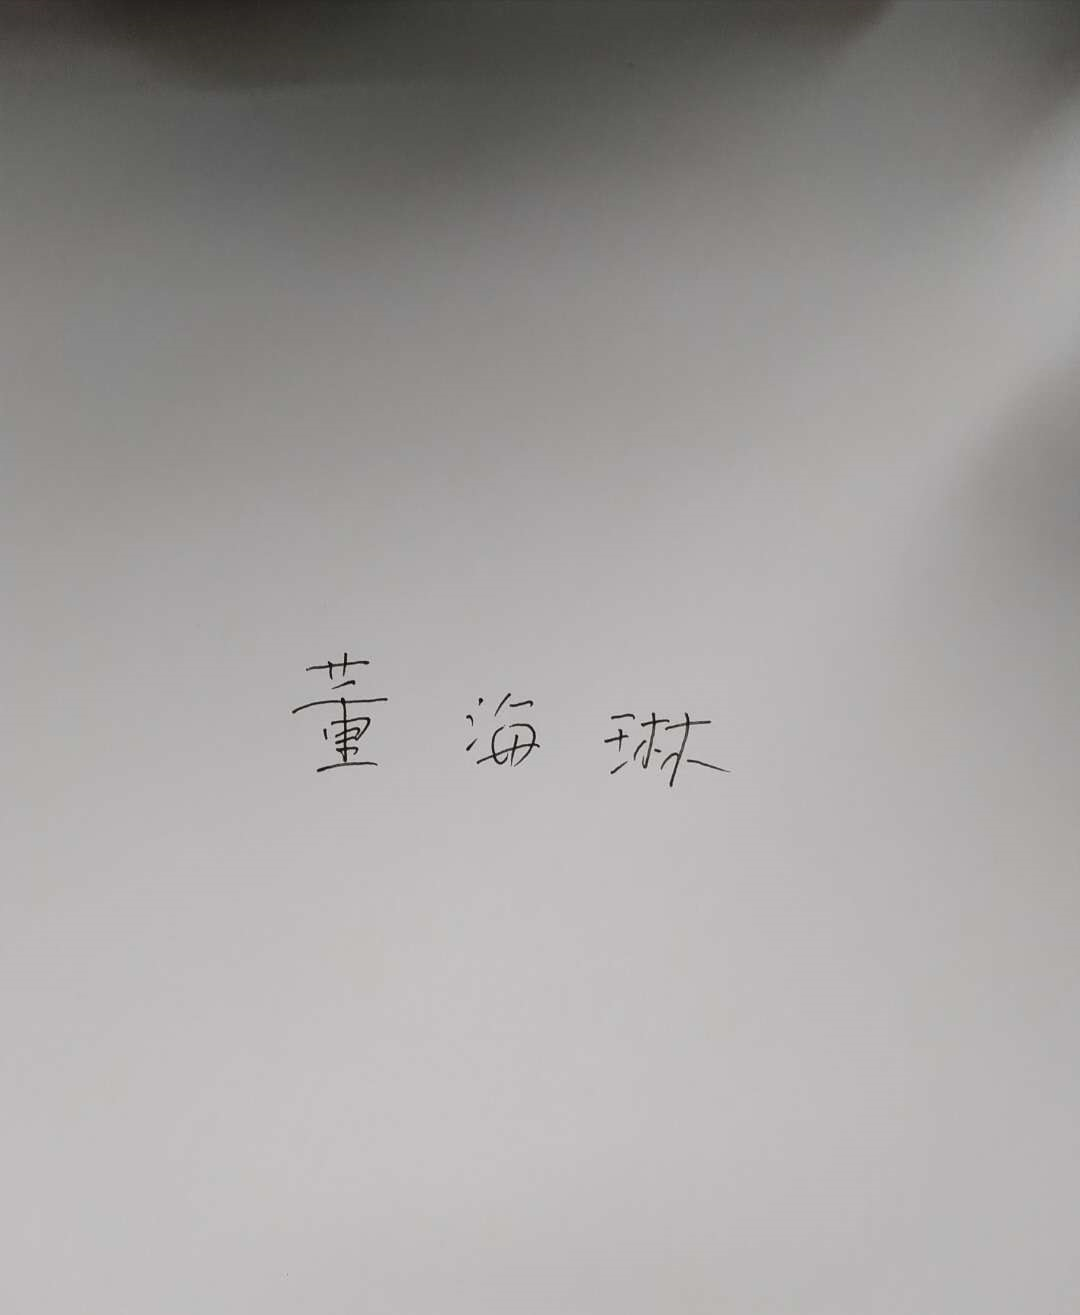 董海琳